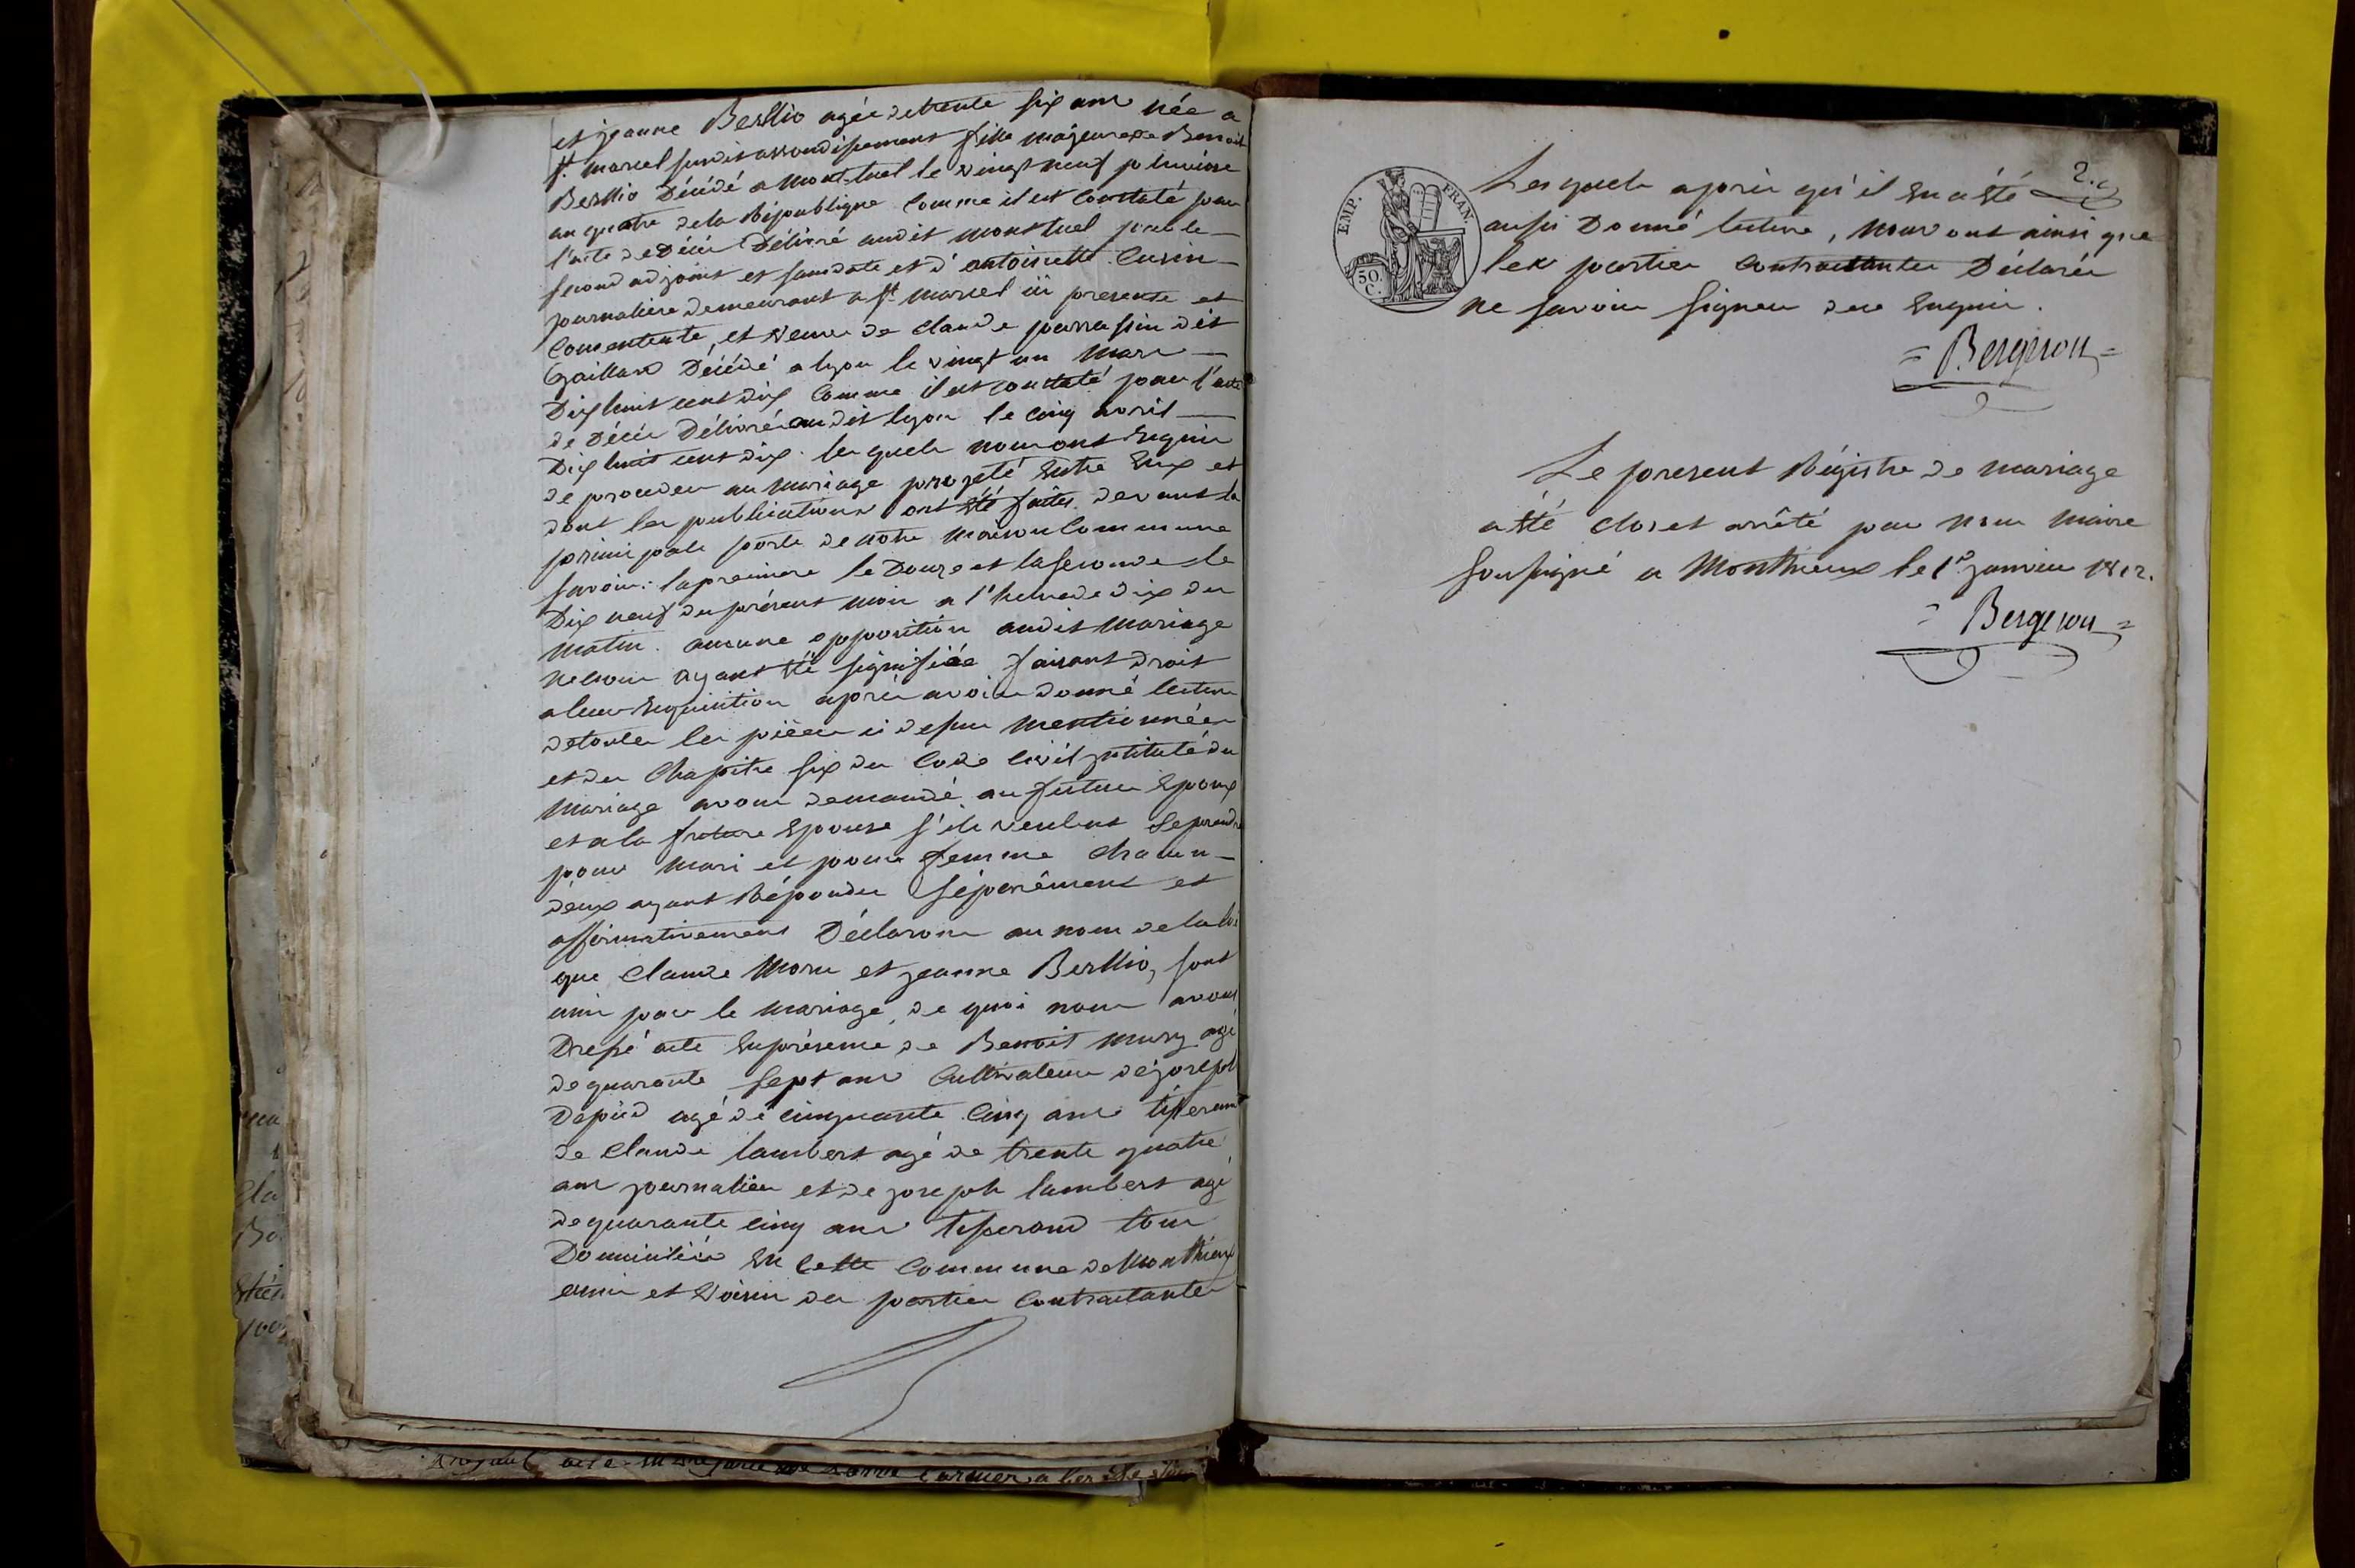 et jeanne Berllio agée de trente six ans née a
st. marcel susdit arrondissement fille majeure de Benoit
Berllio Décédé a Montluel le vingt neuf pluviose
an quatre de la République comme il est constaté par
l'acte de Décès Délivré audit montluel par le
second adjoint et sans date et d'antoinette Cusin
journaliere demeurant a st. marcel ici presente et
consentente, et veuve de claude parrassin dit
Gaillard Décédé a lyon le vingt un Mars
Dix huit cent dix comme il est constaté par l'acte
de Décès Délivré audit lyon le cinq avril
Dix huit cent dix. les quels nous ont requis
de proceder au mariage projeté entre eux et
dont les publications ont été faites devant la
principale porte de notre maison Commune
savoir: la premiere le Douze et la seconde le
Dix neuf du présent mois a l'heure de dix du
matin. aucune opposition audit mariage
ne nous ayant été signifiée faisant droit
a leur requisition après avoir donné lecture
de toutes les pièces ci dessus mentionnées
et du Chapitre six du Code civil intitulé du
Mariage avons demandé au futur Epoux
et a la future Epouse s'ils veulent se prendre
pour mari et pour femme Chacun
d'eux ayant Répondu séparément et
affirmativement Déclarons au nom de la loi
que Claude More et jeanne Berllio, sont
unis par le mariage, de quoi nous avons
Dressé acte en présence de Benoit mury agé
de quarante sept ans Cultivateur de joseph
agé de cinquante cinq ans tisserand
de Claude lambert agé de trente quatre
ans journalier et de joseph lambert agé
de quarante cinq ans tisserand tous
Domiciliés en cette Commune de Monthieux
amis et voisins des parties Contractantes
EMP. FRAN.
50 C.
2.
Les quels après qu'il en a été
aussi Donné lecture, nous ont ainsi que
les parties Contractantes Déclarés
ne savoir signer de ce enquis.
= Bergeron =
Le present Régistre de mariage
a été clos et arrêté par nous Maire
soussigné a Monthieux le 1er janvier 1812.
= Bergeron =